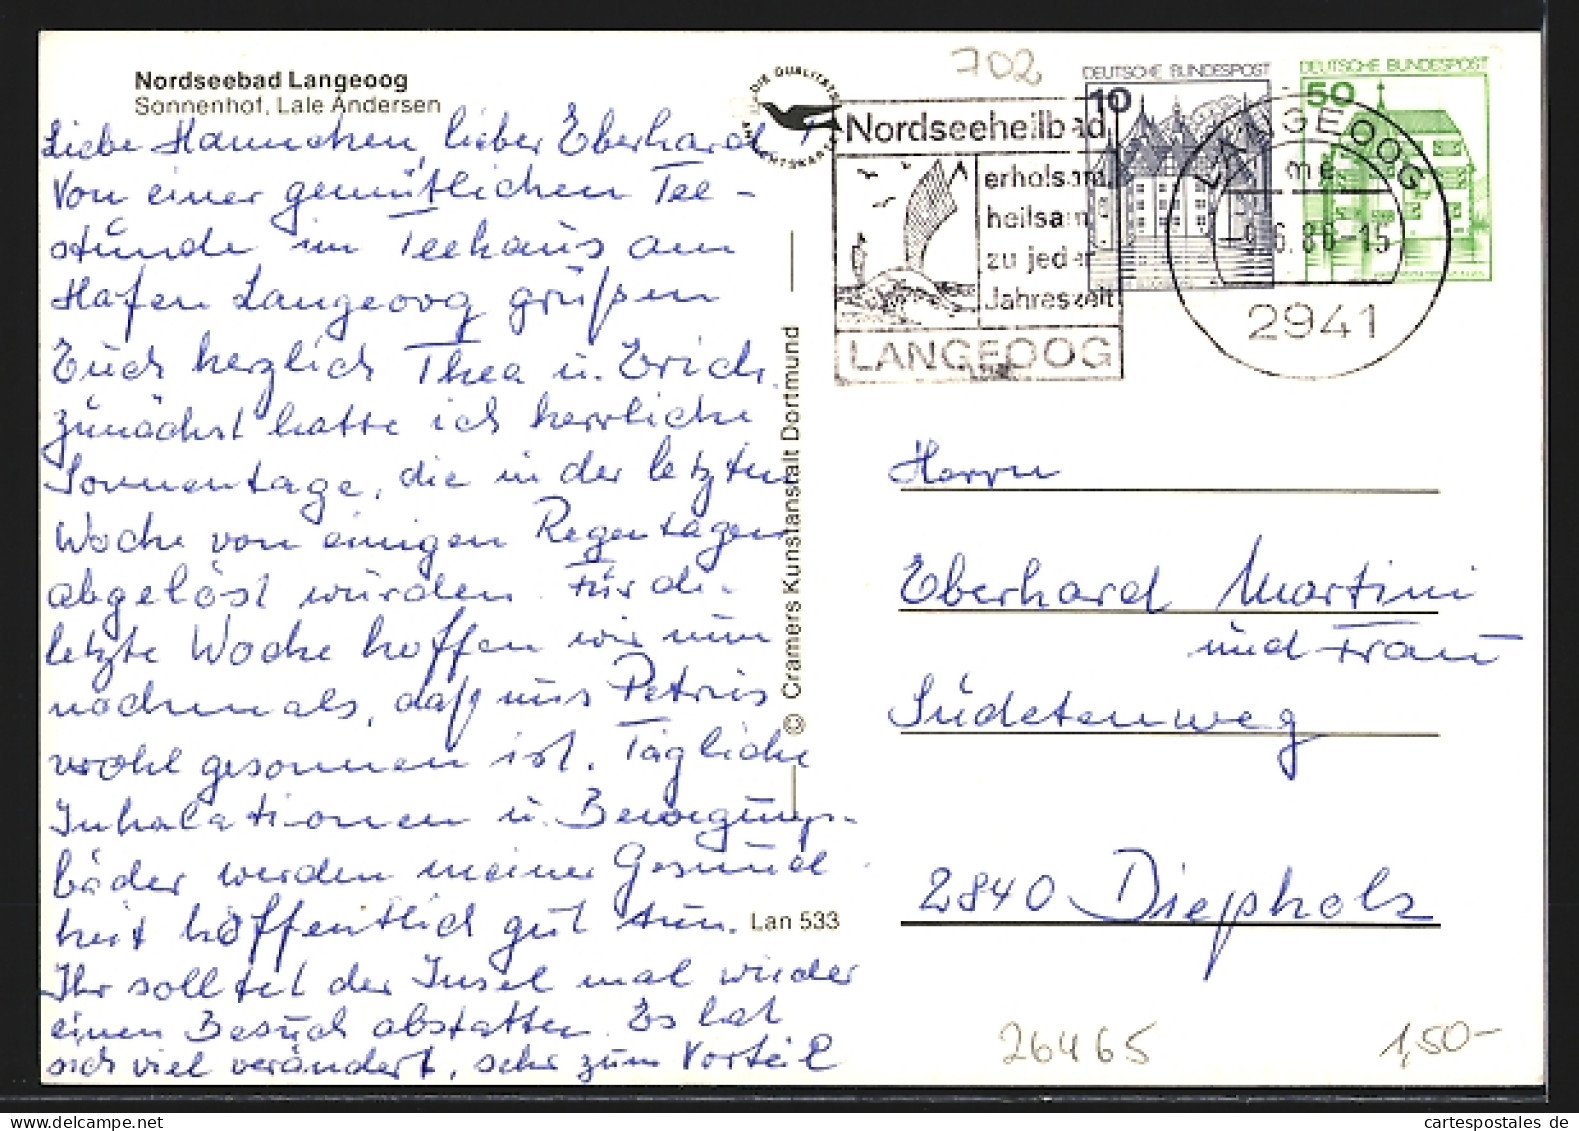 Nordseebad Langeoog
Sonnenhof, Lale Andersen
Liebe Hannchen, lieber Eberhard!
Von einer gemütlichen Tee-
stunde im Teehaus am
Hafen Langeoog grüßen
Euch herzlich Thea u. Erich.
Zunächst hatte ich herrliche
Sonnentage, die in der letzten
Woche von einigen Regentagen
abgelöst wurden. Für die
letzte Woche hoffen wir nun
nochmals, daß uns Petrus
wohl gesonnen ist. Tägliche
Inhalationen u. Bewegungs-
bäder werden meiner Gesund
heit hoffentlich gut tun.
Ihr solltet der Insel mal wieder
einen Besuch abstatten. Es hat
sich viel verändert, sehr zum Vorteil
DIE QUALITÄTS
ANSICHTSKARTE
© Cramers Kunstanstalt Dortmund
Lan 533
702
DEUTSCHE BUNDESPOST
10
DEUTSCHE BUNDESPOST
50
Nordseeheilbad
erholsam
heilsam
zu jeder
Jahreszeit
LANGEOOG
LANGEOOG
me
6.86-15
2941
Herrn
Eberhard Martini
und Frau
Sudetenweg
2840 Diepholz
26465
1,50-
cartespostales de